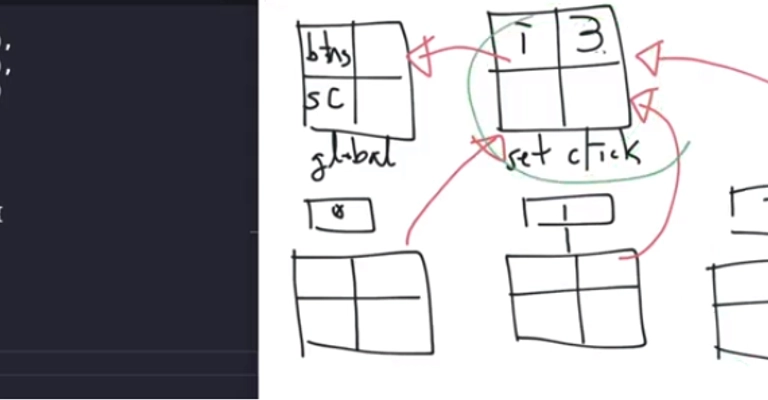 btns
i 3
sc
global
set click
0
1